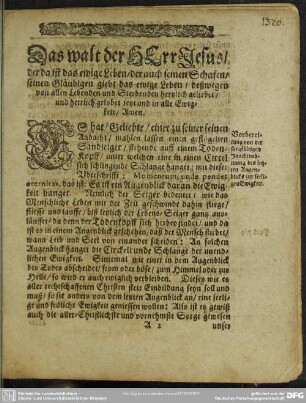 1320.
Das walt der HErr JEsus/
der da ist das ewige Leben/ der auch seinen Schafen/
seinen Gläubigen giebt das ewige Leben/ deßwegen
von allen Lebenden und Sterbenden herrlich geliebet/
und herrlich gelobet sey und in alle Ewig-
keit/ Amen.
ES hat/ Geliebte/ einer zu seiner seinen
Andacht/ mahlen lassen einen geflügelten
Sandseiger/ stehende auff einem Todten-
Kopff/ unter welchen eine in einen Circkel
sich schlingende Schlange hanget; mit dieser
Uberschrifft: Momentum unde pendet
æternitas, das ist: Es ist ein Augenblick daran die Ewig-
keit hanget. Nemlich der Seiger bedeutet: wie das
Menschliche Leben mit der Zeit geschwinde dahin fliege/
fliesse und lauffe/ biß letzlich der Lebens-Seiger gantz aus-
lauffet/ da denn der Todenkopff sich herbey findet/ und da
ist es in einem Augenblick geschehen/ daß der Mensch stirbet/
wann Leib und Seel von einander scheiden: An solchen
Augenblick hanget die Circkel-runde Schlange der unend-
lichen Ewigkeit. Sintemal wie einer in dem Augenblick
des Todes abscheidet/ fromm oder böse/ zum Himmel oder zur
Helle/ so wird er auch ewiglich verbleiben. Dieses wie es
aller rechtschaffenen Christen stete Einbildung seyn soll und
muß/ so sie anders von dem letzten Augenblick an/ eine seeli-
ge und fröliche Ewigkeit geniessen wollen: Also ist es gewiß
auch die aller-Christlichste und vornehmste Sorge gewesen
A 2
unser
Vorberei-
tung von der
sorgfältigen
des letz-
ten Augen-
blicks zur seeli-
gen Ewigkeit.